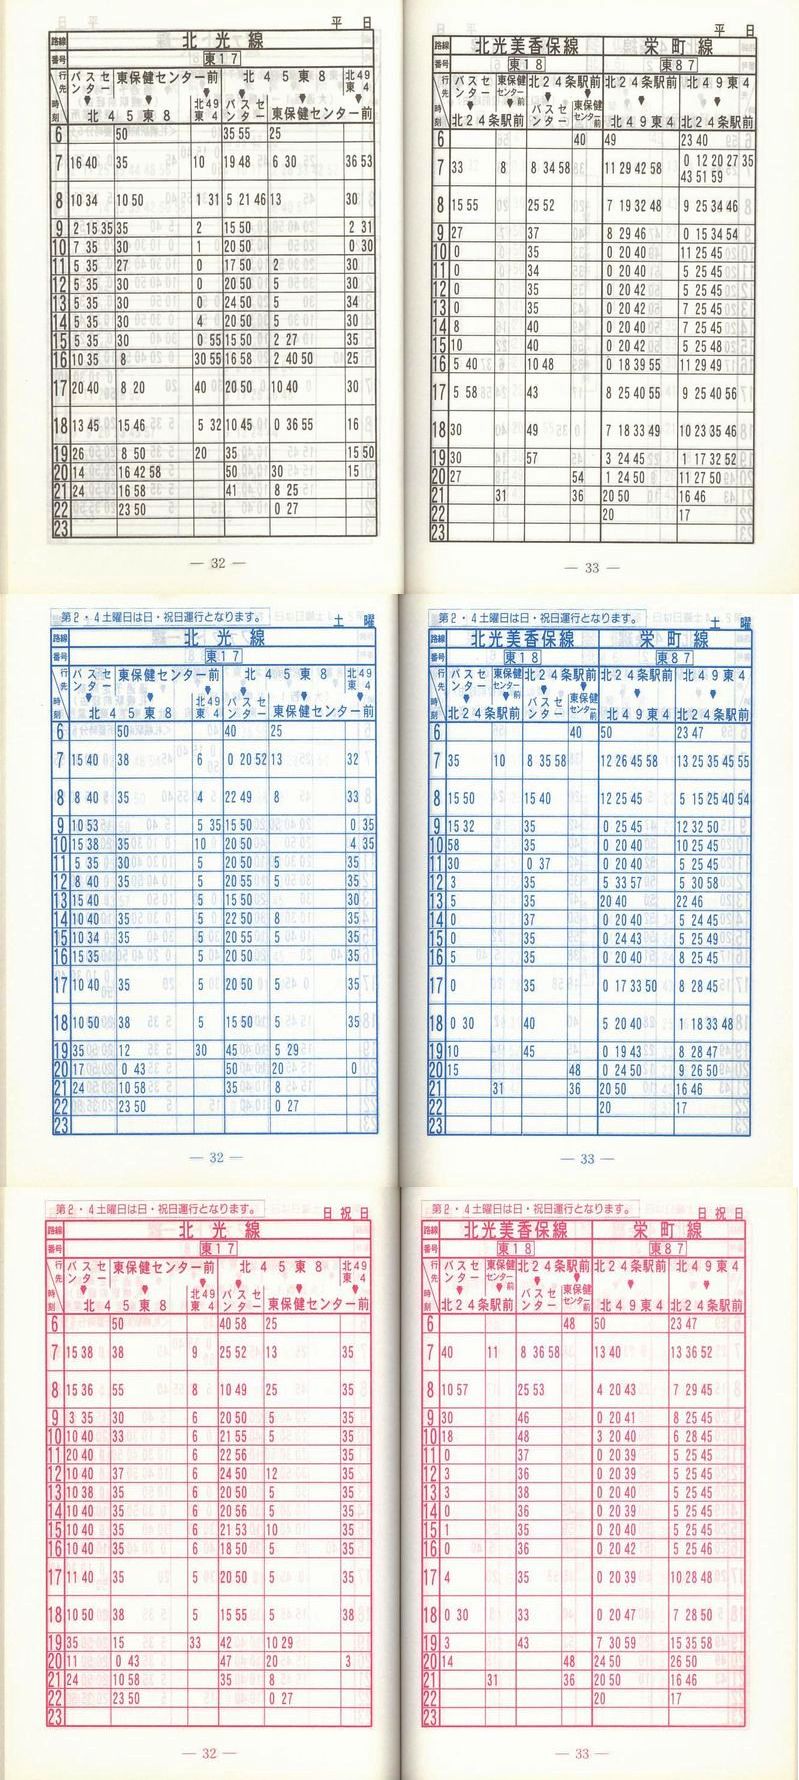 平 日
路線 北 光 線
番号 東17
行先 バスセンター 東保健センター前 北 4 5 東 8 北49東4
時刻 北 4 5 東 8 北49東4 バスセンター 東保健センター前
6 50 35 55 25
7 16 40 35 10 19 48 6 30 36 53
8 10 34 10 50 1 31 5 21 46 13 30
9 2 15 35 35 2 15 50 2 31
10 7 35 30 1 20 50 0 30
11 5 35 27 0 17 50 2 30
12 5 35 30 0 20 50 5 30
13 5 35 30 0 24 50 5 34
14 5 35 30 4 20 50 5 30
15 5 35 30 0 55 15 50 2 27 35
16 10 35 8 30 55 16 58 2 40 50 25
17 20 40 8 20 40 20 50 10 40 30
18 13 45 15 46 5 32 10 45 0 36 55 16
19 26 8 50 20 35 15 50
20 14 16 42 58 50 30 15
21 24 16 58 41 8 25
22 23 50 0 27
23
— 32 —
平 日
路線 北光美香保線 栄 町 線
番号 東18 東87
行先 バスセンター 東保健センター前 北24条駅前 北24条駅前 北 4 9 東 4
時刻 北24条駅前 バスセンター 東保健センター前 北 4 9 東 4 北24条駅前
6 40 49 23 40
7 33 8 8 34 58 11 29 42 58 0 12 20 27 35
43 51 59
8 15 55 25 52 7 19 32 48 9 25 34 46
9 27 37 8 29 46 0 15 34 54
10 0 35 0 20 40 11 25 45
11 0 34 0 20 40 5 25 45
12 0 35 0 20 42 5 25 45
13 0 35 0 20 42 7 25 45
14 8 40 0 20 40 7 25 45
15 10 40 0 20 42 5 25 48
16 5 40 10 48 0 18 39 55 11 29 49
17 5 58 43 8 25 40 55 9 25 40 56
18 30 49 7 18 33 49 10 23 35 46
19 30 57 3 24 45 1 17 32 52
20 27 54 1 24 50 11 27 50
21 31 36 20 50 16 46
22 20 17
23
— 33 —
第2・4土曜日は日・祝日運行となります。
土 曜
路線 北 光 線
番号 東17
行先 バスセンター 東保健センター前 北 4 5 東 8 北49東4
時刻 北 4 5 東 8 北49東4 バスセンター 東保健センター前
6 50 40 25
7 15 40 38 6 0 20 52 13 32
8 8 40 35 4 22 49 8 33
9 10 53 5 35 15 50 0 35
10 15 38 35 10 20 50 4 35
11 5 35 30 5 20 50 5 35
12 8 40 35 5 20 55 5 35
13 15 40 5 15 50 30
14 10 40 35 5 22 50 8 35
15 10 34 35 5 20 55 5 35
16 15 35 5 20 50 35
17 10 40 35 5 20 50 5 35
18 10 50 38 5 15 50 5 35
19 35 12 30 45 5 29
20 17 0 43 50 20 0
21 24 10 58 35 8
22 23 50 0 27
23
— 32 —
第2・4土曜日は日・祝日運行となります。
土 曜
路線 北光美香保線 栄 町 線
番号 東18 東87
行先 バスセンター 東保健センター前 北24条駅前 北24条駅前 北 4 9 東 4
時刻 北24条駅前 バスセンター 東保健センター前 北 4 9 東 4 北24条駅前
6 40 50 23 47
7 35 10 8 35 58 12 26 45 58 13 25 35 45 55
8 15 50 15 40 12 25 45 5 15 25 40 54
9 15 32 35 0 25 45 12 32 50
10 58 35 0 20 40 5 25 45
11 30 0 37 0 20 40 5 25 45
12 3 35 5 33 57 5 30 58
13 5 35 20 40 22 46
14 0 37 0 20 40 5 24 45
15 0 35 0 24 43 5 25 49
16 5 35 0 20 40 8 25 45
17 0 35 0 17 33 50 8 28 45
18 0 30 40 5 20 40 1 18 33 48
19 10 45 0 19 43 8 28 47
20 15 48 0 24 50 9 26 50
21 31 36 20 50 16 46
22 20 17
23
— 33 —
第2・4土曜日は日・祝日運行となります。
日 祝 日
路線 北 光 線
番号 東17
行先 バスセンター 東保健センター前 北 4 5 東 8 北49東4
時刻 北 4 5 東 8 北49東4 バスセンター 東保健センター前
6 50 40 58 25
7 15 38 38 9 25 52 13 35
8 15 36 55 8 10 49 25 35
9 3 35 30 6 20 50 5 35
10 10 40 33 6 21 55 5 35
11 20 40 6 22 56 35
12 10 40 37 6 24 50 12 35
13 10 38 35 6 20 50 5 35
14 10 40 35 6 20 56 5 35
15 10 40 35 6 21 53 10 35
16 10 40 35 6 18 50 5 35
17 11 40 35 5 20 50 5 35
18 10 50 38 5 15 55 5 38
19 35 15 33 42 10 29
20 11 0 43 47 20 3
21 24 10 58 35 8
22 23 50 0 27
23
— 32 —
第2・4土曜日は日・祝日運行となります。
日 祝 日
路線 北光美香保線 栄 町 線
番号 東18 東87
行先 バスセンター 東保健センター前 北24条駅前 北24条駅前 北 4 9 東 4
時刻 北24条駅前 バスセンター 東保健センター前 北 4 9 東 4 北24条駅前
6 48 50 23 47
7 40 11 8 36 58 13 40 13 36 52
8 10 57 25 53 4 20 43 7 29 45
9 30 46 0 20 41 8 25 45
10 18 48 3 20 40 6 28 45
11 0 37 0 20 39 5 25 45
12 3 36 0 20 39 5 25 45
13 3 38 0 20 40 5 25 45
14 0 36 0 20 39 5 25 45
15 1 35 0 20 40 5 25 45
16 0 36 0 20 42 5 25 46
17 4 35 0 20 39 10 28 48
18 0 30 33 0 20 47 7 28 50
19 3 43 7 30 59 15 35 58
20 14 48 24 50 26 50
21 31 36 20 50 16 46
22 20 17
23
— 33 —